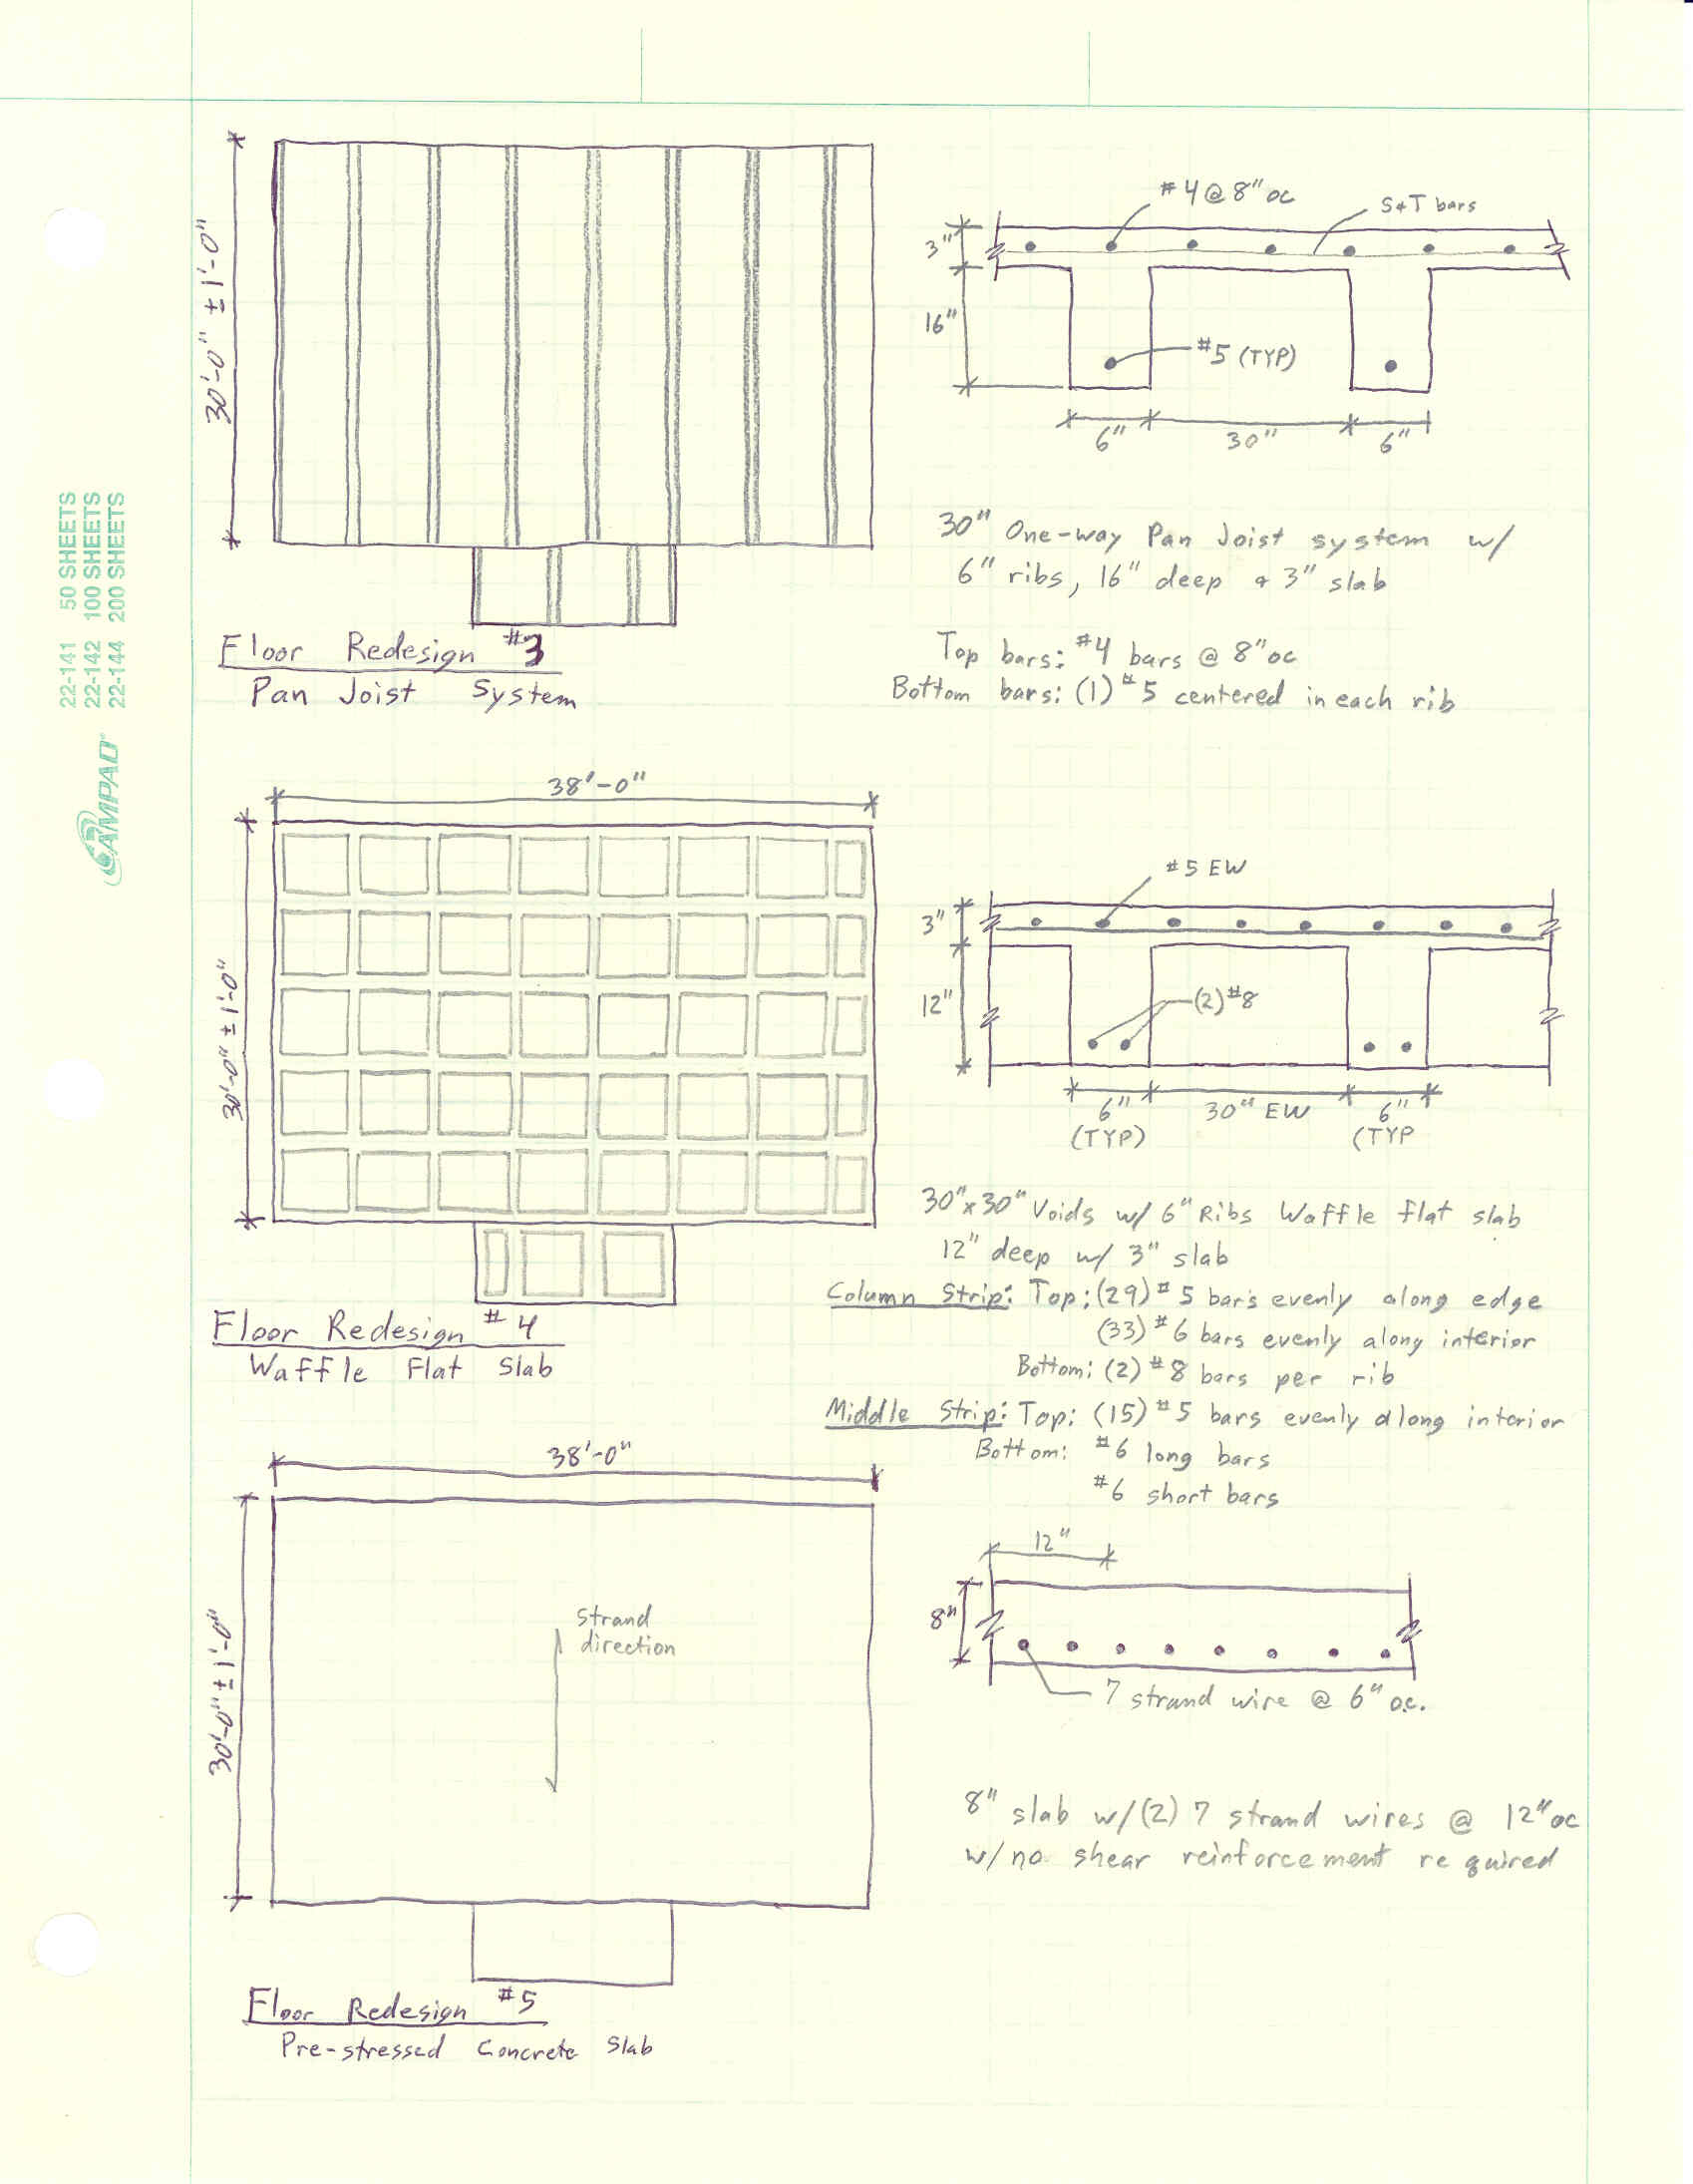 22-141 50 SHEETS
22-142 100 SHEETS
22-144 200 SHEETS
AMPAD
30'-0" ± 1'-0"
Floor Redesign #3
Pan Joist System
#4@8" oc
S&T bars
3"
16"
#5 (TYP)
6" 30" 6"
30" One-way Pan Joist system w/
6" ribs, 16" deep & 3" slab
Top bars: #4 bars @ 8" oc
Bottom bars: (1) #5 centered in each rib
38'-0"
30'-0" ± 1'-0"
Floor Redesign #4
Waffle Flat Slab
#5 EW
3"
12"
(2)#8
6" 30" EW 6"
(TYP) (TYP
30"x30" Voids w/ 6" Ribs Waffle flat slab
12" deep w/ 3" slab
Column Strip: Top: (29) #5 bars evenly along edge
(33) #6 bars evenly along interior
Bottom: (2) #8 bars per rib
Middle Strip: Top: (15) #5 bars evenly along interior
Bottom: #6 long bars
#6 short bars
38'-0"
30'-0" ± 1'-0"
Strand
direction
Floor Redesign #5
Pre-stressed Concrete Slab
12"
8"
7 strand wire @ 6" o.c.
8" slab w/(2) 7 strand wires @ 12" oc
w/no shear reinforcement required